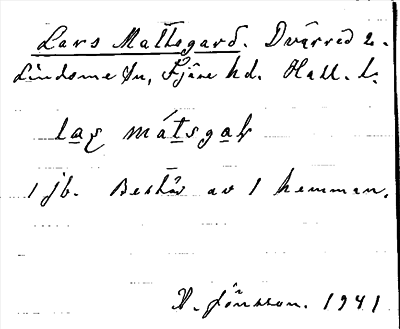 Lars Mattsgard. Dvärred 2.
Lindome sn, Fjäre hd. Hall. l.
laṣ mátsgaḷ
1 jb. Består av 1 hemman.
V. Jönsson. 1941